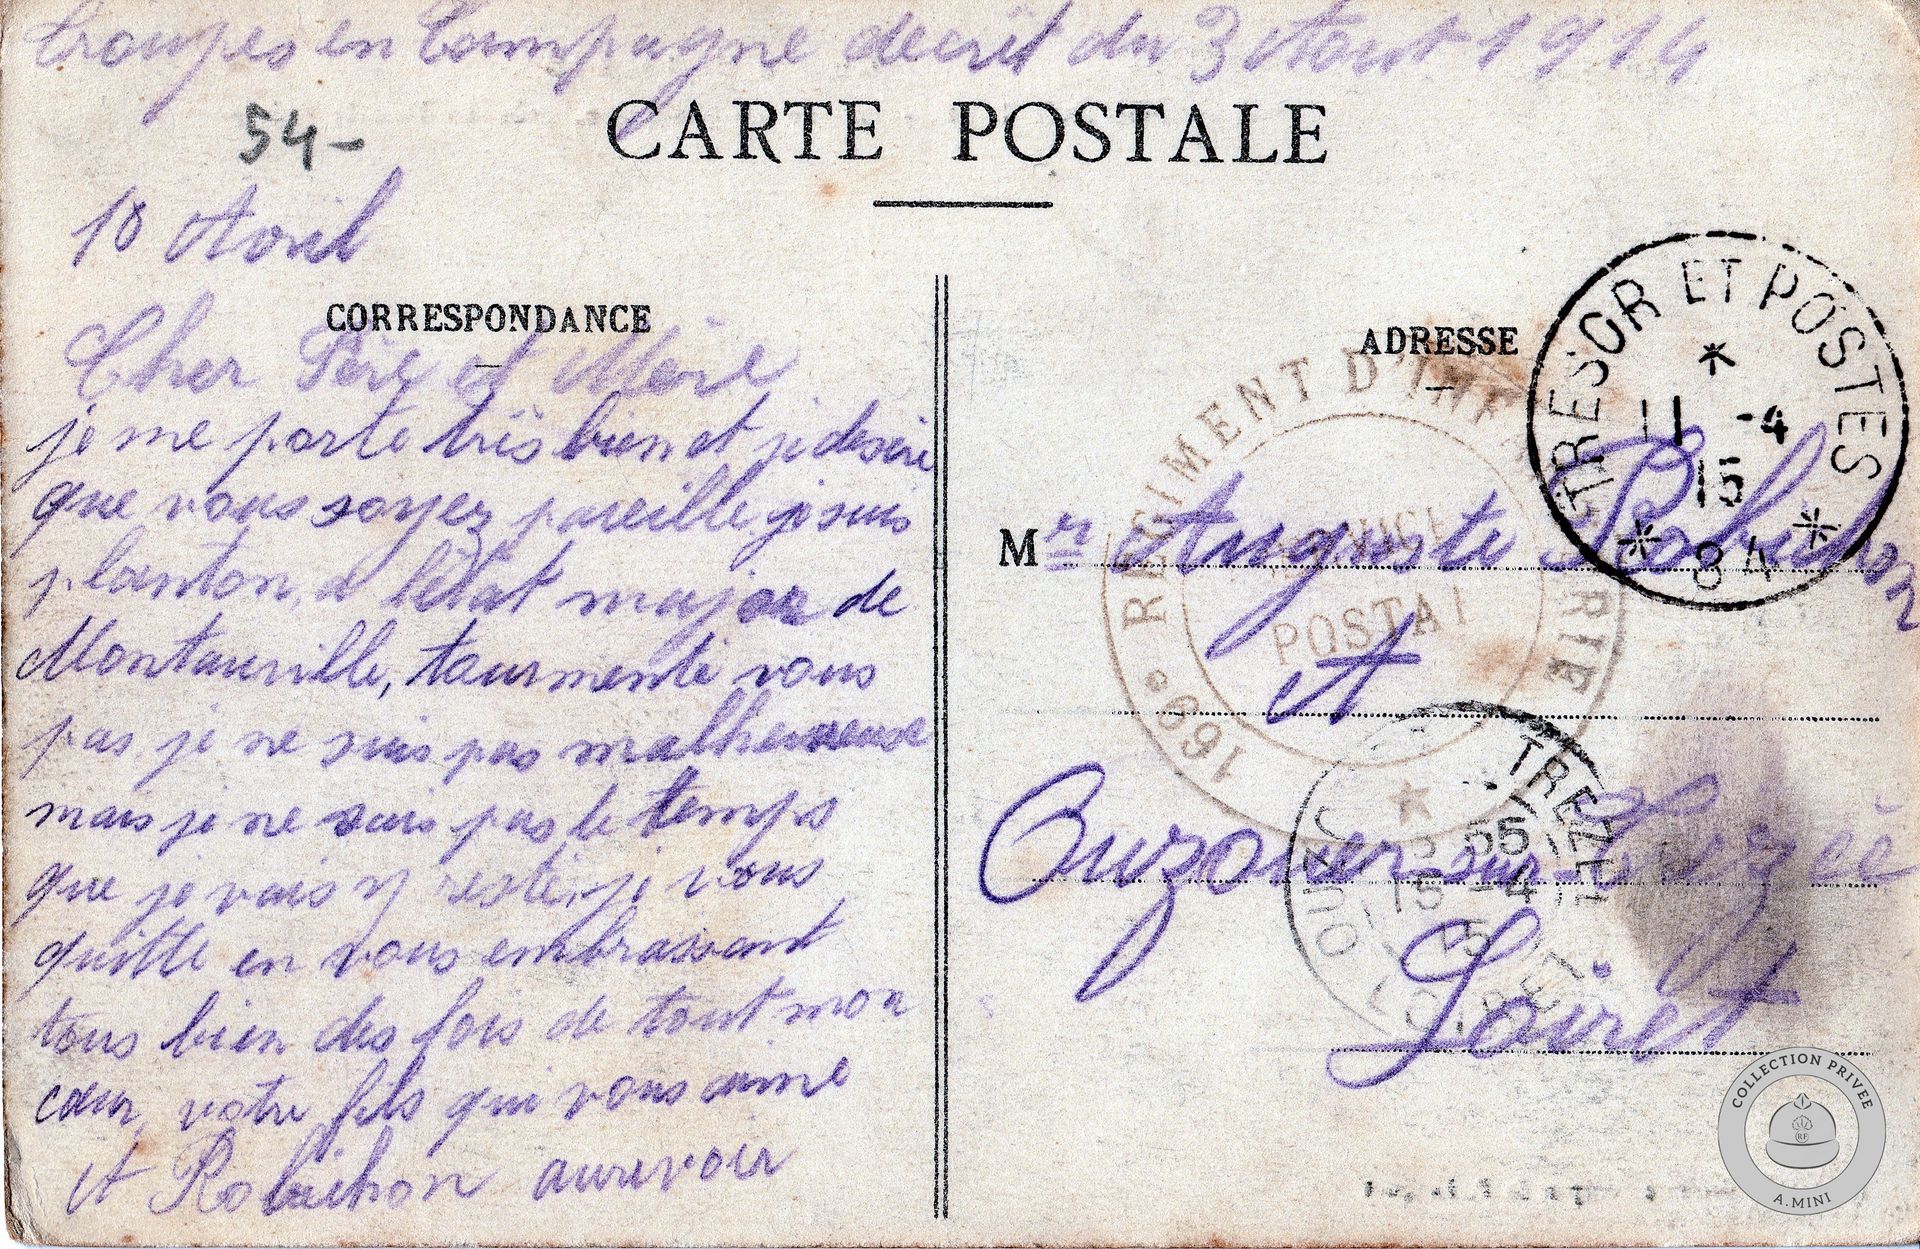 Troupes en Campagne decrit du 3 Aout 1914
CARTE POSTALE
54-
10 Avril
CORRESPONDANCE
Cher Père et Mère
je me porte très bien et je desire
que vous soyez pareille je suis
planton, a l'état major de
Montauville, tourmenté vous
pas je ne suis pas malheureuse
mais je ne sais pas le temps
que je vais y resté, je vous
quitte en vous embrassant
tous bien des fois de tout mon
cœur, votre fils qui vous aime
A Robichon aurevoir
ADRESSE
Mr Auguste Robichon
A
Ouzouer-sur-Trézeé
Loiret
TRESOR ET POSTES
11 -4
15
* 84 *
169e REGIMENT D'INFANTERIE
SERVICE
POSTAL
OUZOUER TREZEE
15 -4
15
LOIRET
COLLECTION PRIVEE
RF
A.MINI